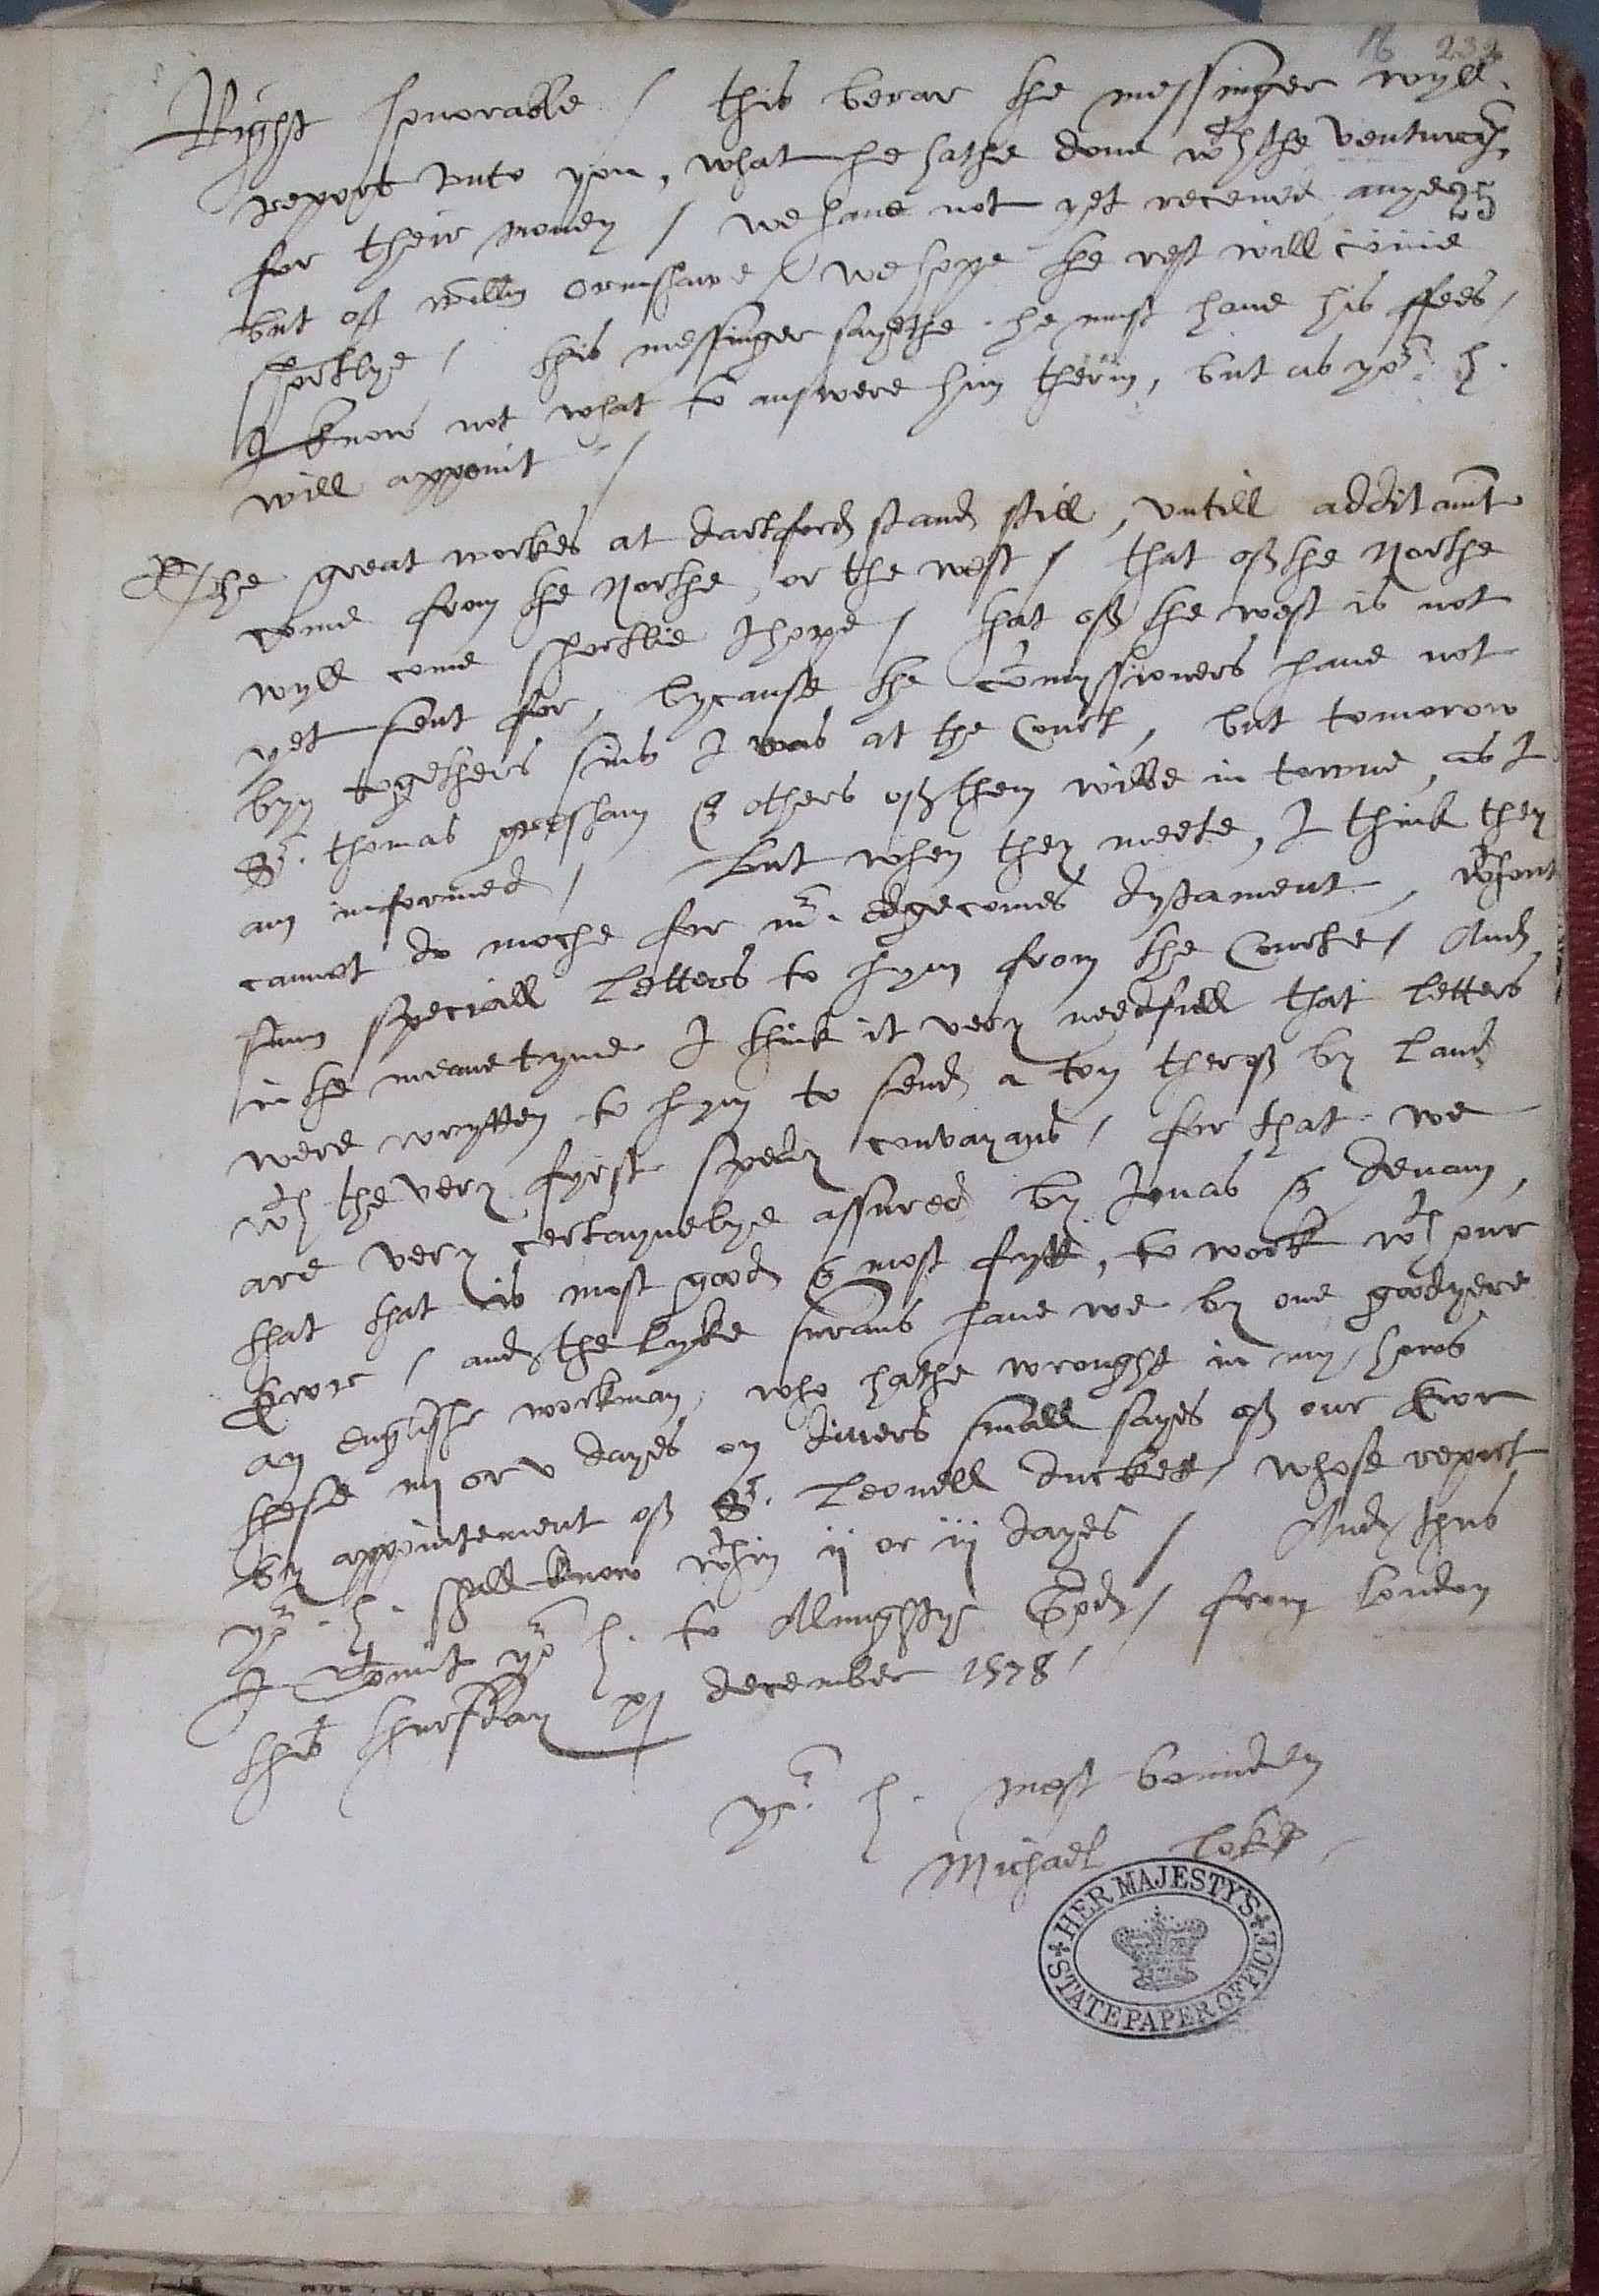 16 232
Right honorable / this berar the messinger wyll
report unto you, what he hathe done wth the venturers,
for their money / we have not yet receved anye
but of Willm Ormshawe / we hope the rest will come
shortlye / this messinger saythe he must have his ffees /
I know not what to answere him therin, but as yor. h.
will appoint /
The great workes at dartford stand still, untill additamt
come from the Northe, or the west / that of the Northe
wyll come shortlie I hope / that of the west is not
yet sent for, bycause the comyssioners have not
byn togethers sins I was at the Court, but tomorow
Sr. thomas gresham & others of them wilbe in towne, as I
am informed / but when they meete, I think they
cannot do moche for mr. Edgecomes dystament, wthout
sum speciall letters to hym from the Courte / And
in the meane tyme I think it very needfull that letters
were wrytten to hym to send a ton therof by land
wth the very fyrst spedy convayans / for that we
are very certaynelye assured by Jonas & denam,
that that is most good & most fytt, to work wth our
Ewre / and the lyke surans have we by one goodyere
an Englishe workman, who hathe wrought in my hows
these iiij or v dayes on divers small sayes of our Ewr
by appointement of Sr. Leonell duckett, whose report
yor. h. shall know wthin ij or iij dayes / And thus
I Comit yor h. to Almightye God / from London
this thursday xj december 1578 /
yor. h. most bounden
Michael Lok
HER MAJESTY'S
STATE PAPER OFFICE